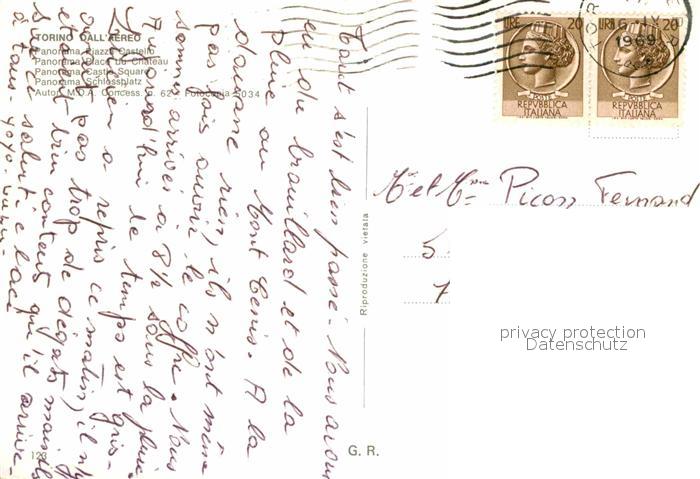 TORINO DALL'AEREO
Panorama Piazza Castello
Panorama Place du Château
Panorama Castle Square
Panorama Schlossplatz
Autor. M.D.A. Concess. n. 62 Fotocopia 5034
Tout s'est bien passé. Nous avons
eu du brouillard et de la
pluie au Mont Cenis. A la
douane rien, ils n'ont même
pas fait ouvrir le coffre. Nous
sommes arrivés à 8½ sous la pluie
Aujourd'hui le temps est gris.
Lucien a repris ce matin, il n'y
a pas trop de dégâts mais ils
bien contents qu'il arrive.
salut
123
G. R.
Riproduzione vietata
LIRE 20
POSTE
REPVBBLICA
ITALIANA
LIRE 20
REPVBBLICA
ITALIANA
1969
Mr et Mme Picon Fernand
5
7
privacy protection
Datenschutz